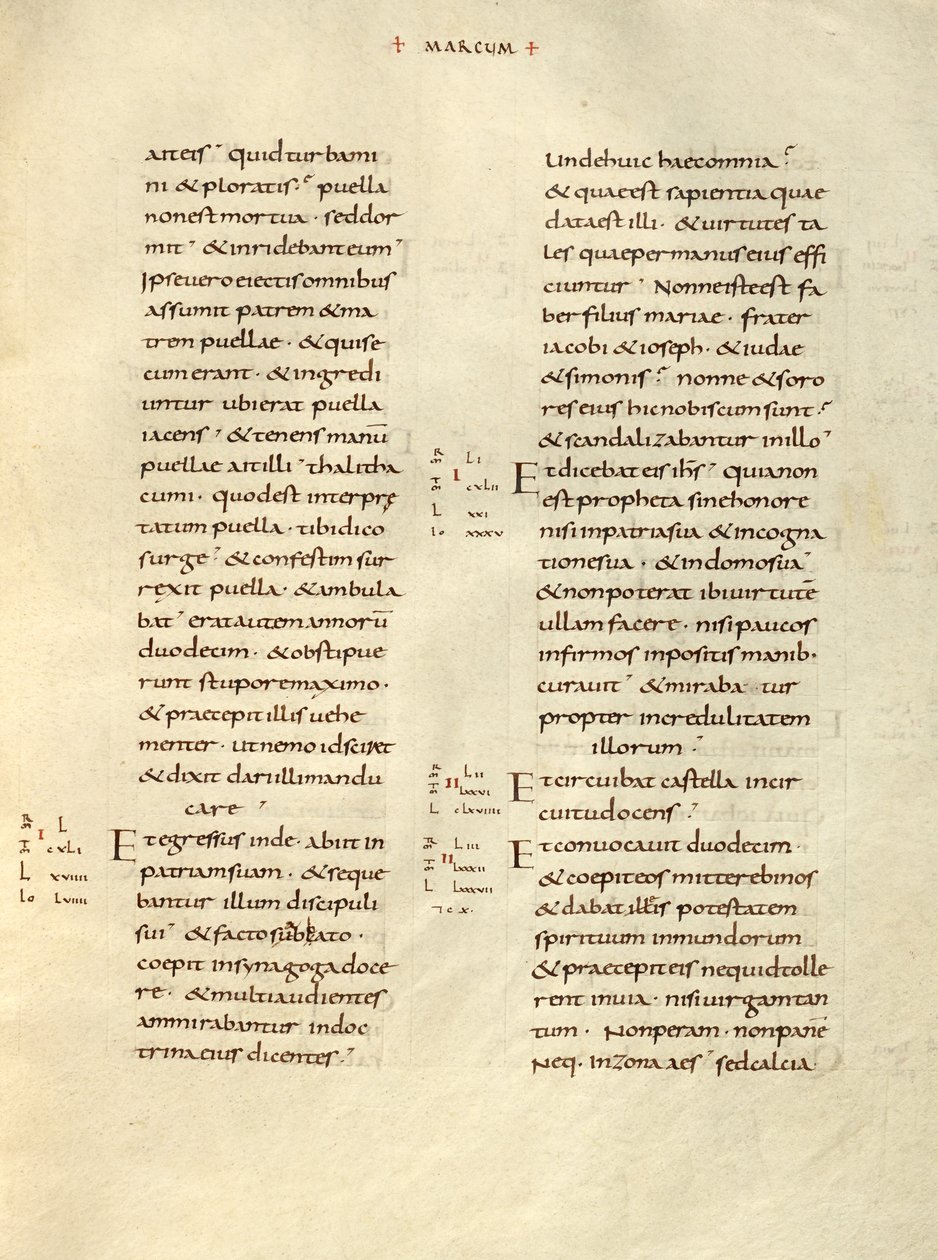 + MARCUM +
ait eis quid turbami
ni & ploratis· puella
non est mortua · sed dor
mit & inridebant eum
Ipse uero eiectis omnibus
assumit patrem & ma
trem puellae · & qui se
cum erant · & ingredi
untur ubi erat puella
iacens & tenens manū
puellae ait illi thalitha
cumi · quod est interprę
tatum puella · tibi dico
surge & confestim sur
rexit puella · & ambula
bat erat autem annorū
duodecim · & obstipue
runt stupore maximo ·
& praecepit illis uehe
menter · ut nemo id sciret
& dixit dari illi mandu
care
L
I
cxLi
L xviiii
Io Lviiii
Et egressus inde · abiit in
patriam suam · & seque
bantur illum discipuli
sui & facto sabbato ·
coepit in synagoga doce
re · & multi audientes
ammirabantur in doc
trina eius dicentes ·
Unde huic haec omnia
& quae est sapientia quae
data est illi · & uirtutes ta
les quae per manus eius effi
ciuntur Nonne iste est fa
ber filius mariae · frater
iacobi & ioseph · & iudae
& simonis nonne & soro
res eius hic nobiscum sunt ·
& scandalizabantur in illo
Li
I
cxLii
L xxi
Io xxxv
Et dicebat eis ihs̄ quia non
est propheta sine honore
nisi in patria sua & in cogna
tione sua · & in domo sua
& non poterat ibi uirtutē
ullam facere · nisi paucos
infirmos inpositis manib·
curauit & miraba tur
propter incredulitatem
illorum ·
Lii
II
Lxxvi
L cLxviiii
Et circuibat castella in cir
cuitu docens ·
Liii
II
Lxxxii
L Lxxxvii
⁊ c x ·
Et conuocauit duodecim ·
& coepit eos mittere binos
& dabat illis potestatem
spirituum inmundorum
& praecepit eis ne quid tolle
rent in uia · nisi uirgam tan
tum · Non peram · non panē
Neq· In zona aes sed calcia